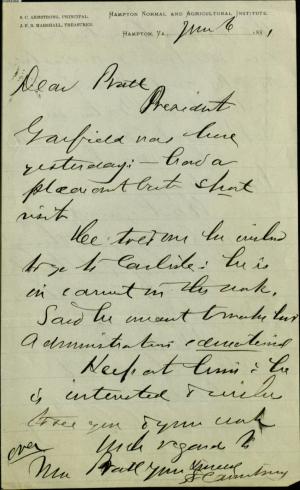 S. C. ARMSTRONG, PRINCIPAL.
J. F. B. MARSHALL, TREASURER.
HAMPTON NORMAL AND AGRICULTURAL INSTITUTE.
HAMPTON, VA., June 6 1881
Dear Pratt
President
Garfield was here
yesterday: — had a
pleasant but short
visit
He told me he wished
to go to Carlisle: he is
in earnest in this work.
Said he meant to make his
Administration educational
at him: he
is interested & wishes
to see you & your work
over
With regards to
Mrs Pratt Yours sincerely
S C Armstrong